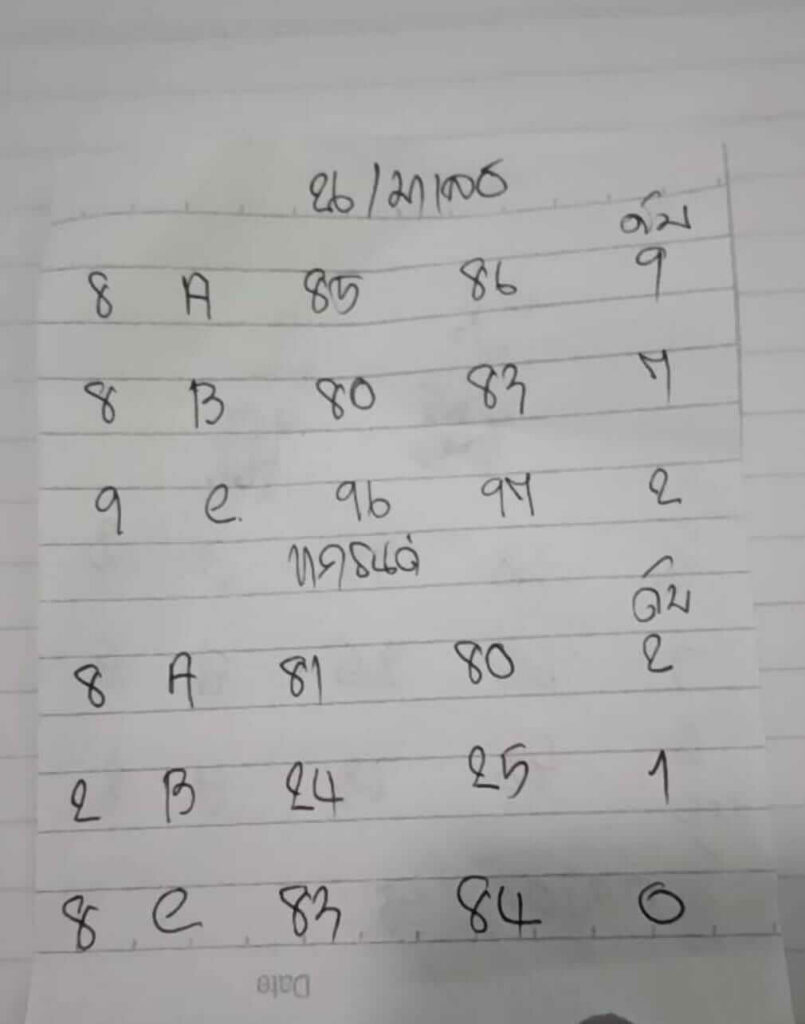 26/มาเลย์
ดับ
8 A 85 86 9
8 B 80 83 7
9 C 96 97 2
ดับ
8 A 81 80 2
2 B 24 25 1
8 C 83 84 0
Date